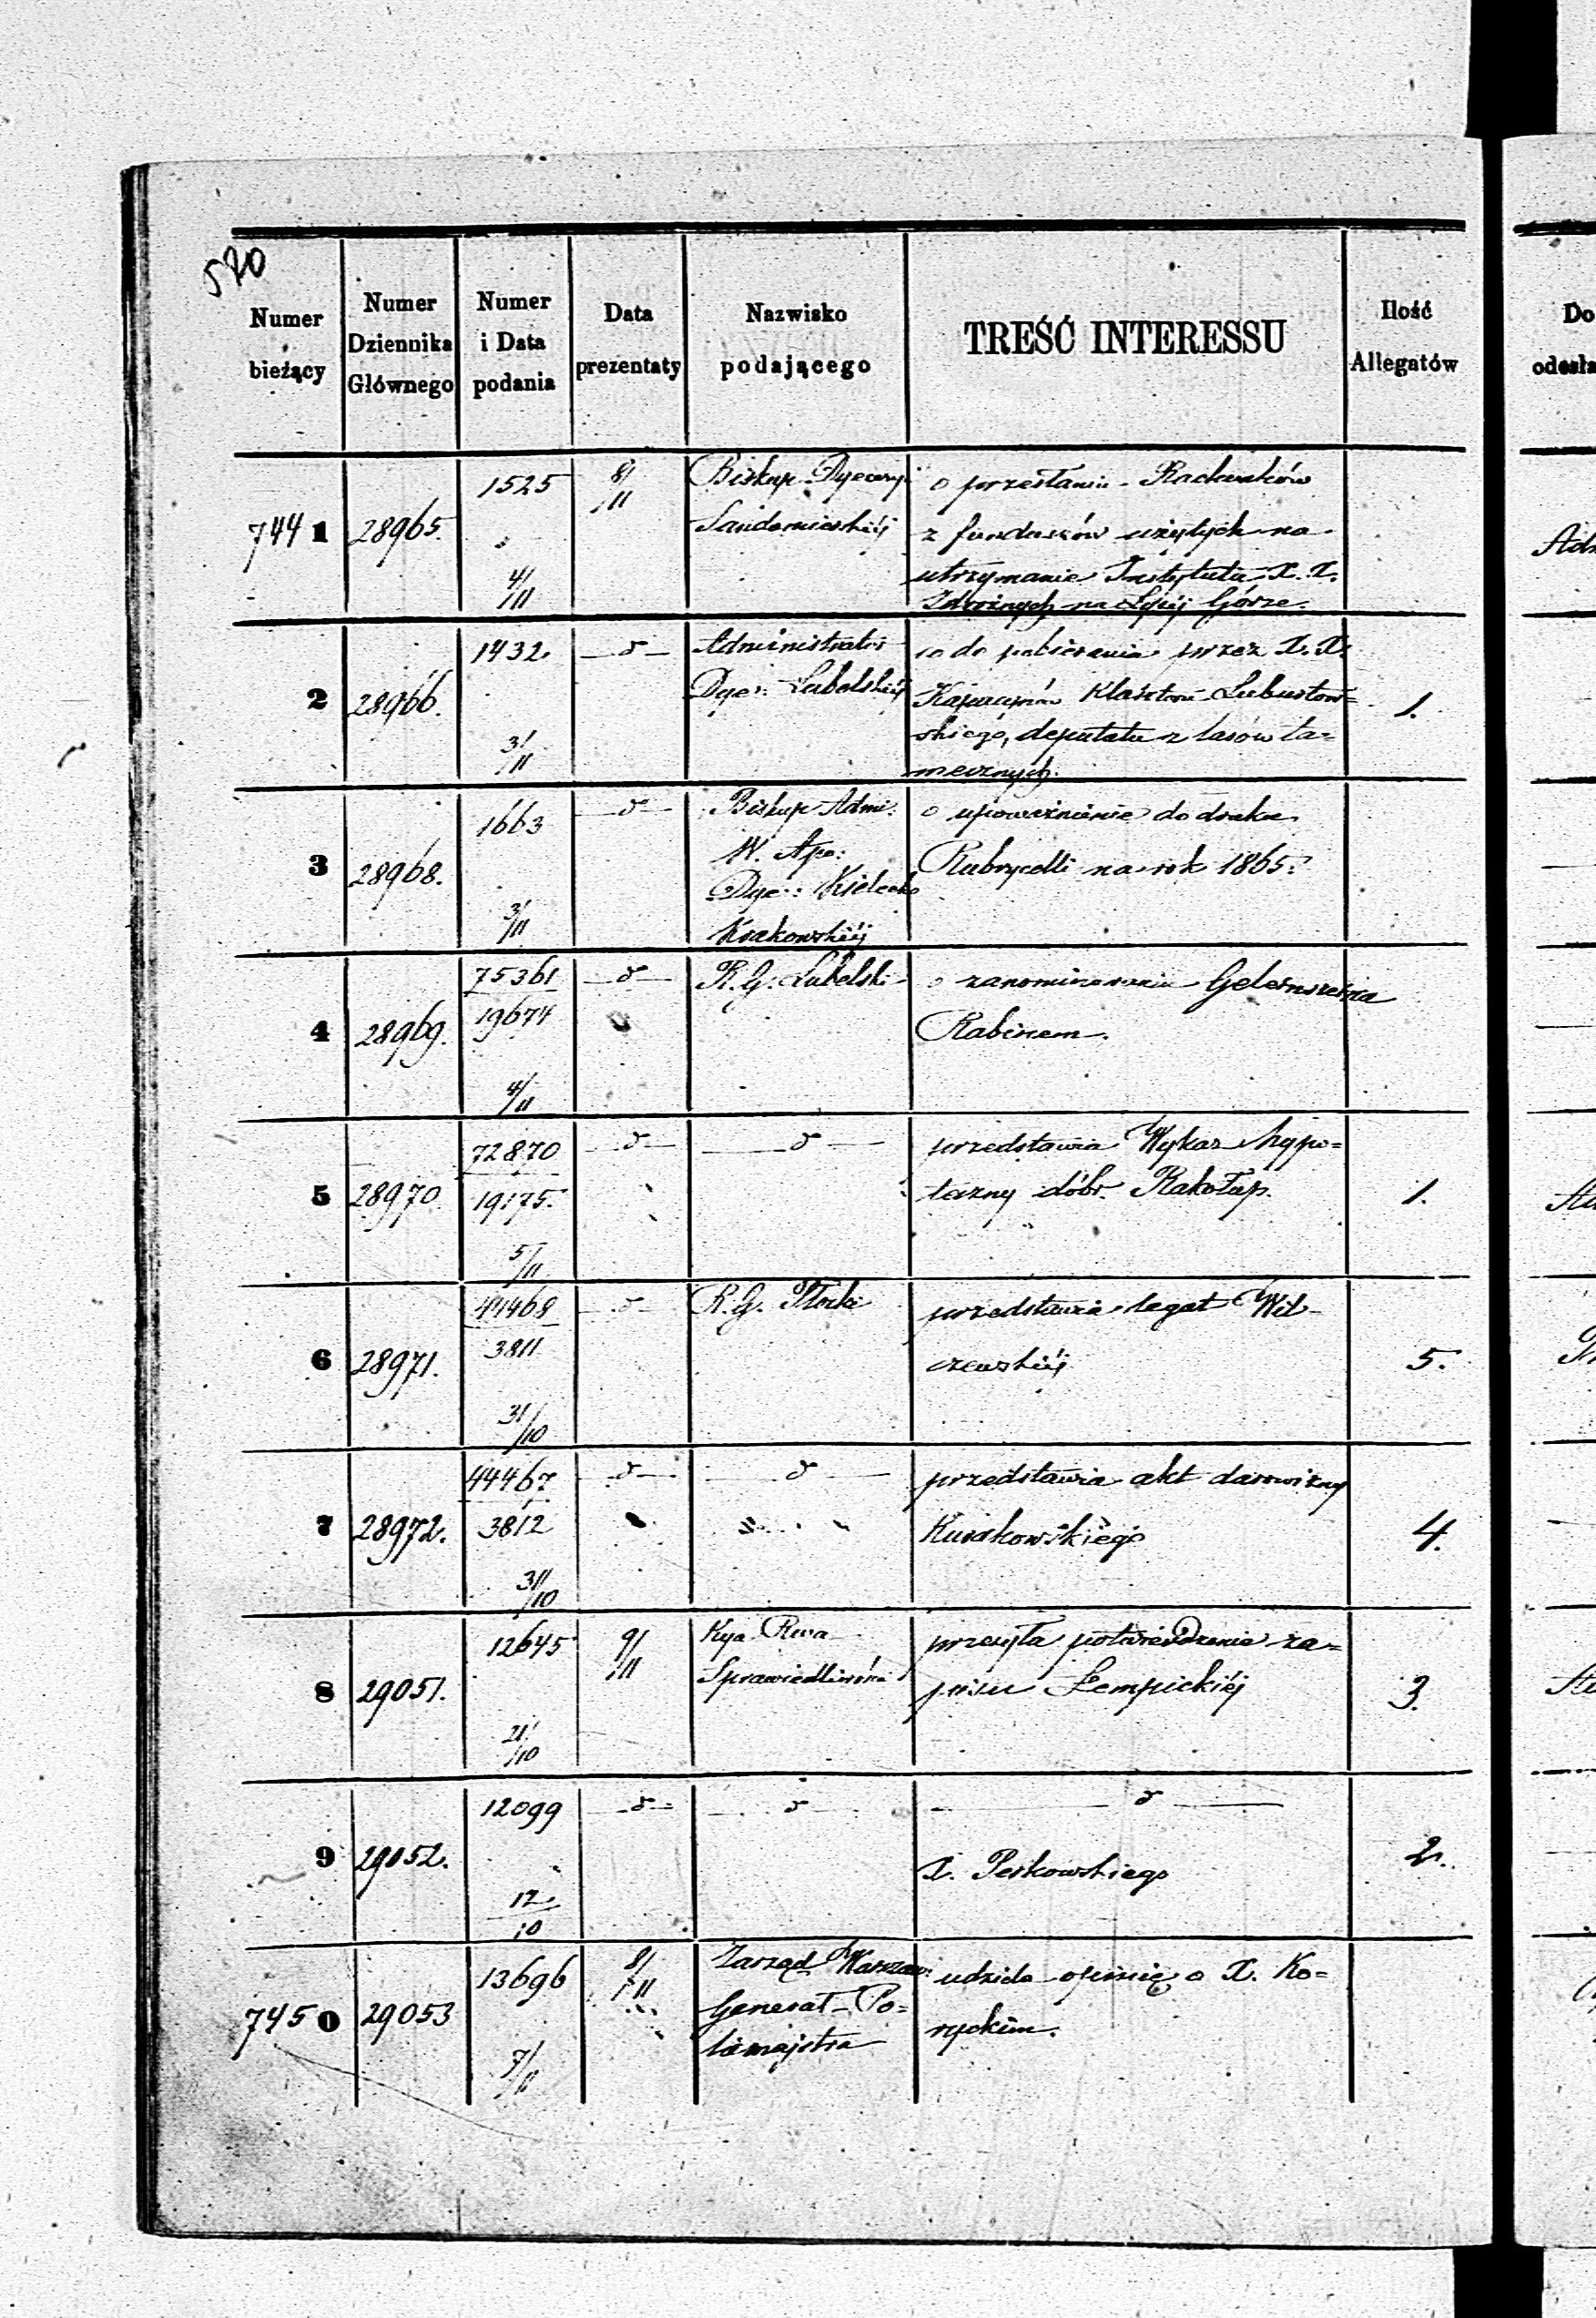 520
Numer bieżący
Numer Dziennika Głównego
Numer i Data podania
Data prezentaty
Nazwisko podającego
TREŚĆ INTERESSU
Ilość Allegatów
Do
odesła
7441
28965.
1525
4/11
8/11
Biskup Dyecezyi
Sandomierskiéj
o przesłaniu Rachunków
z funduszów użytych na
utrzymanie Instytutu X. X.
Zdrożnych na Łyséj Górze.
2
28966.
1432.
3/11
Administrator
Dyec: Lubelskiéj
co do pobierania przez X. X.
Kapucynów Klasztoru Lubartow=
skiego, deputatu z lasów ta=
mecznych.
1.
3
28968.
1663
3/11
Biskup Admi:
W. Apo:
Dyec: Kielecko
Krakowskiéj
o upoważnienie do druku
Rubrycelli na rok 1865.
4
28969.
75361
19674
4/11
R. G. Lubelski
o zanominowanie
Rabinem.
5
28970
72870
19175.
5/11
przedstawia Wykaz hypo=
teczny dóbr Rakołup.
1.
6
28971.
44468
3811
31/10
R. G. Płocki
przedstawia legat Wil-
czewskiéj
5.
7
28972.
44467
3812
31/10
przedstawia akt darowizny
4.
8
29051.
12645
21/10
9/11
Kya Rwa
Sprawiedliwości
przesyła potwierdzenie za=
pisu Łempickiéj
3.
9
29052.
12099
12/10
X. Peskowskiego
2.
7450
29053
13696
7/11
8/11
Zarząd Warszaw:
Generał-Po=
licmajstra
udziela opinię o X. Ko=
ryckim.